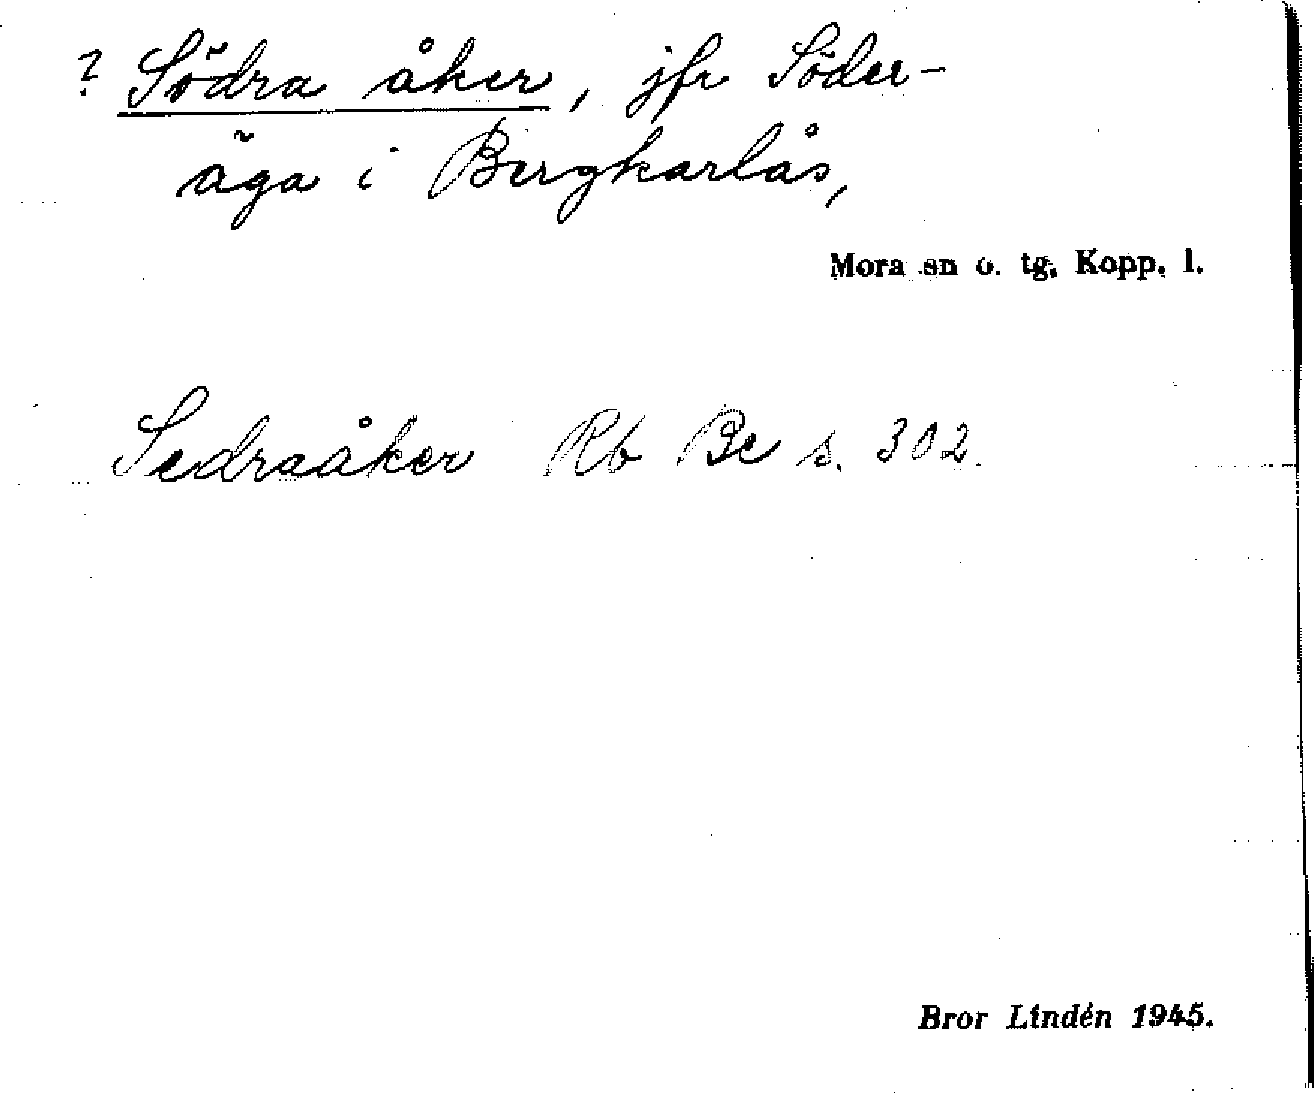 ? Södra åker, jfr Söder-
äga i Bergkarlås,
Mora sn o. tg. Kopp. l.
Sedraåker Rb Be s. 302.
Bror Lindén 1945.